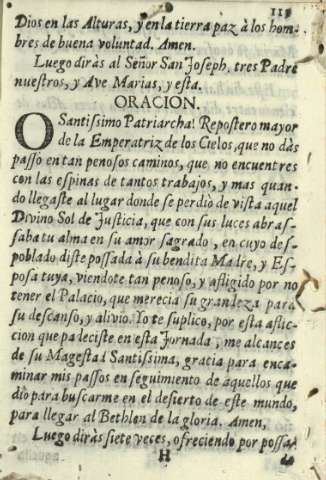 119
Dios en las Alturas, y en la tierra paz à los hom-
bres de buena voluntad. Amen.
Luego diràs al Señor San Joseph, tres Padre
nuestros, y Ave Marias, y esta.
ORACION.
O Santissimo Patriarcha! Repostero mayor
de la Emperatriz de los Cielos, que no dàs
passo en tan penosos caminos, que no encuentres
con las espinas de tantos trabajos, y mas quan-
do llegaste al lugar donde se perdiò de vista aquel
Divino Sol de Justicia, que con sus luces abras-
saba tu alma en su amor sagrado, en cuyo des-
poblado diste possada à su bendita Madre, y Es-
posa tuya, viendote tan penoso, y afligido por no
tener el Palacio, que merecia su grandeza para
su descanso, y alivio. Yo te suplico, por esta aflic-
cion que padeciste en esta Jornada, me alcances
de su Magestad Santissima, gracia para enca-
minar mis passos en seguimiento de aquellos que
dio para buscarme en el desierto de este mundo,
para llegar al Bethlen de la gloria. Amen,
Luego diràs siete veces, ofreciendo por possa
H